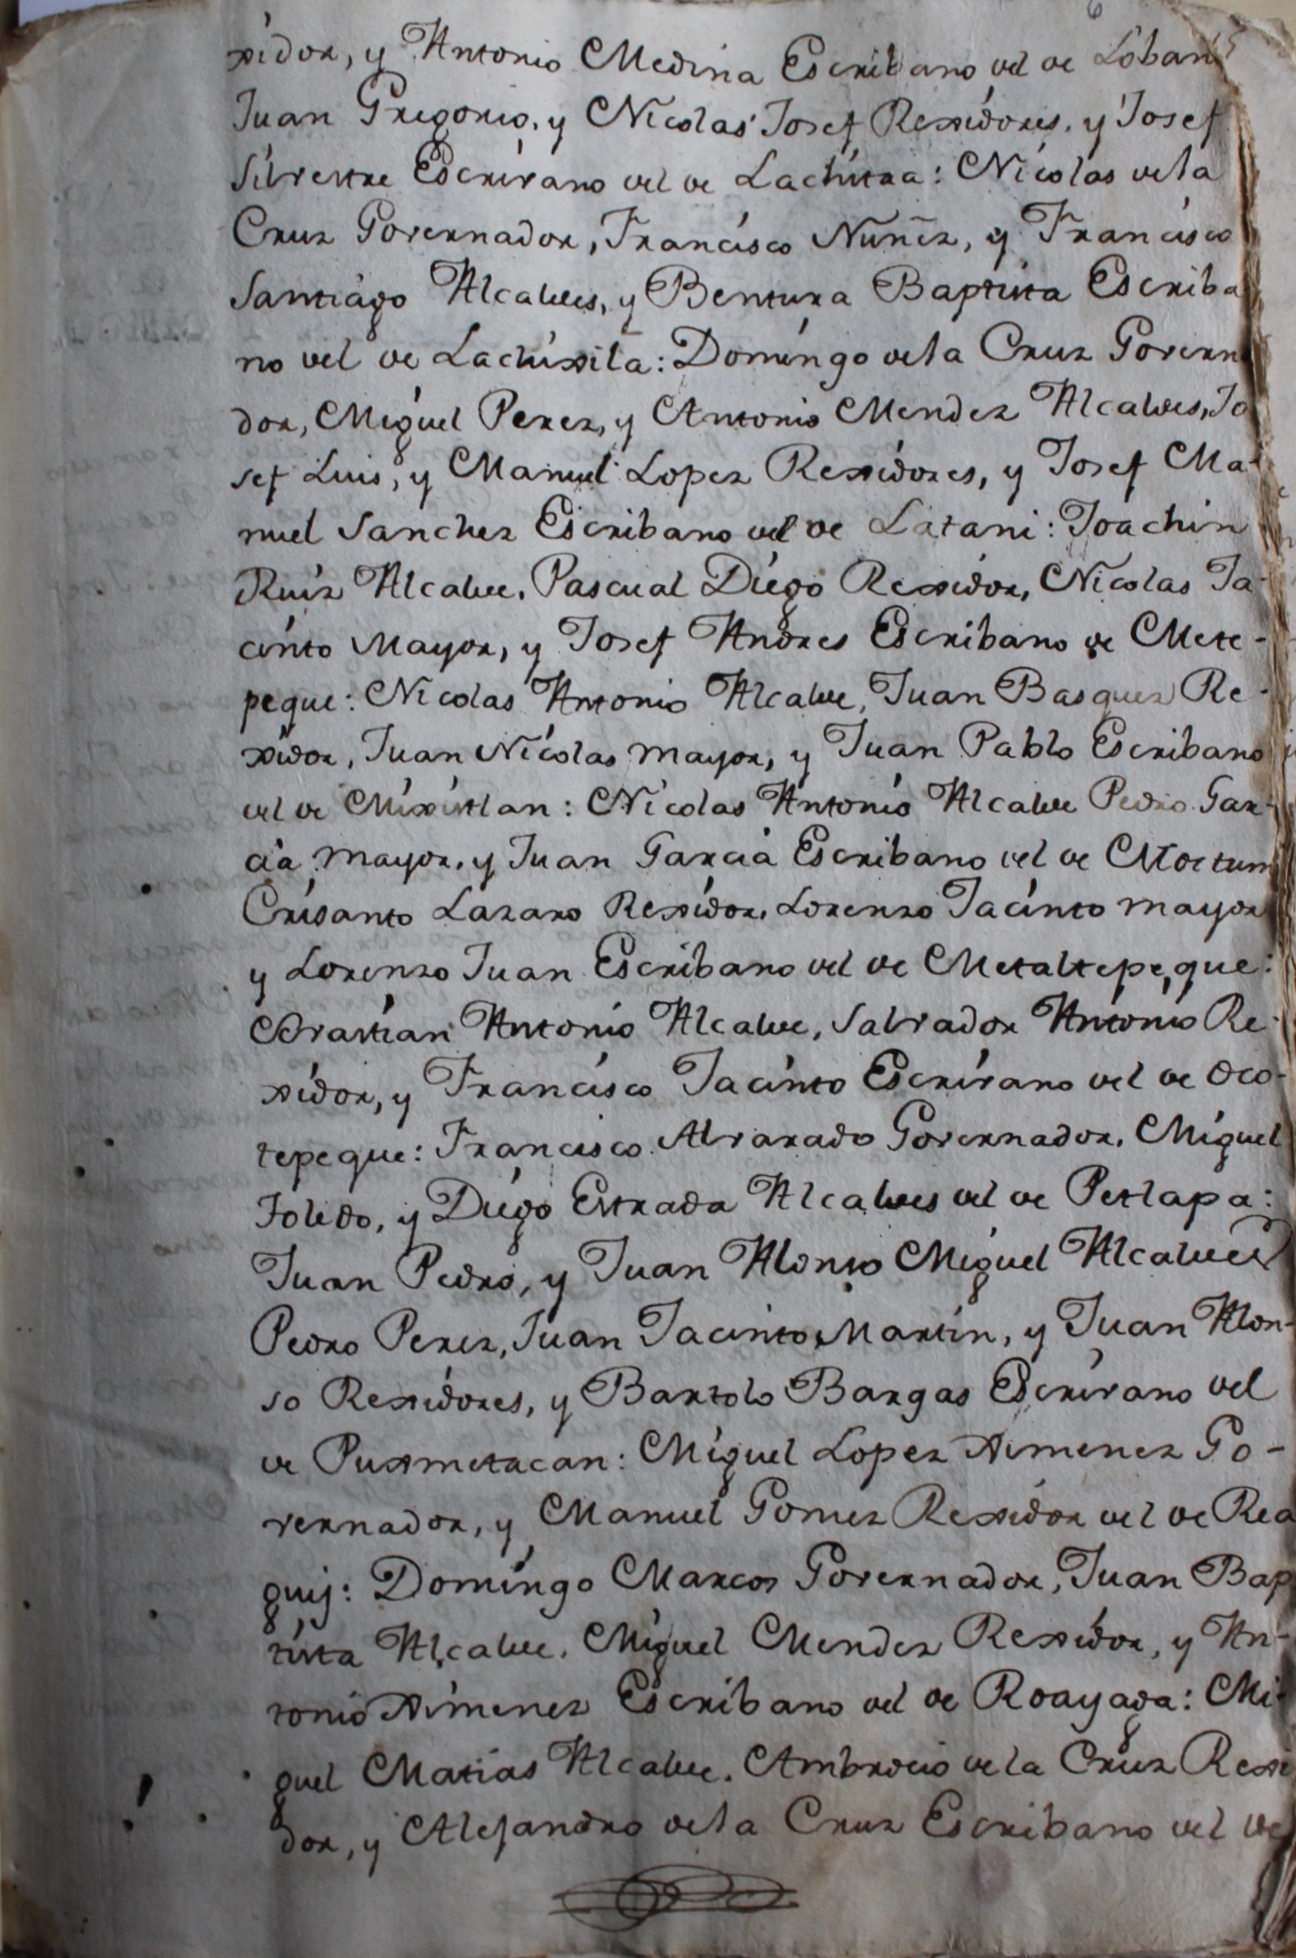 xidor, y Antonio Medina Escribano del de Loban
Juan Gregorio, y Nicolas Josef Rexidores, y Josef
Silvestre Escrivano del de Lachitaa: Nicolas dela
Cruz Governador, Francisco Nuñez, y Francisco
Santiago Alcaldes, y Bentura Baptista Escriba
no del de Lachixila: Domingo dela Cruz Governa
dor, Miguel Perez, y Antonio Mendez Alcaldes, Jo
sef Luis, y Manuel Lopez Rexidores, y Josef Ma-
nuel Sanchez Escribano del de Latani: Joachin
Ruiz Alcalde, Pascual Diego Rexidor, Nicolas Ja-
cinto Mayor, y Josef Andres Escribano de Mete-
peque: Nicolas Antonio Alcalde, Juan Basquez Re-
xidor, Juan Nicolas mayor, y Juan Pablo Escribano
del de Mixistlan: Nicolas Antonio Alcalde Pedro Gar-
cia mayor, y Juan Garcia Escribano del de Moctum
Crisanto Lazaro Rexidor, Lorenzo Jacinto mayor
y Lorenzo Juan Escribano del de Metaltepeque:
Sebastian Antonio Alcalde, Salvador Antonio Re-
xidor, y Francisco Jacinto Escrivano del de Oco-
tepeque: Francisco Alvarado Governador, Miguel
Toledo, y Diego Estrada Alcaldes del de Petlapa:
Juan Pedro, y Juan Alonso Miguel Alcaldes
Pedro Perez, Juan Jacinto Martin, y Juan Alon-
so Rexidores, y Bartolo Bargas Escrivano del
de Puxmetacan: Miguel Lopez Ximenez Go-
vernador, y Manuel Gomez Rexidor del de Rea
guij: Domingo Marcos Governador, Juan Bap
tista Alcalde, Miguel Mendez Rexidor, y An-
tonio Ximenez Escribano del de Roayaga: Mi-
guel Matias Alcalde, Ambrocio dela Cruz Rexi
dor, y Alejandro dela Cruz Escribano del de